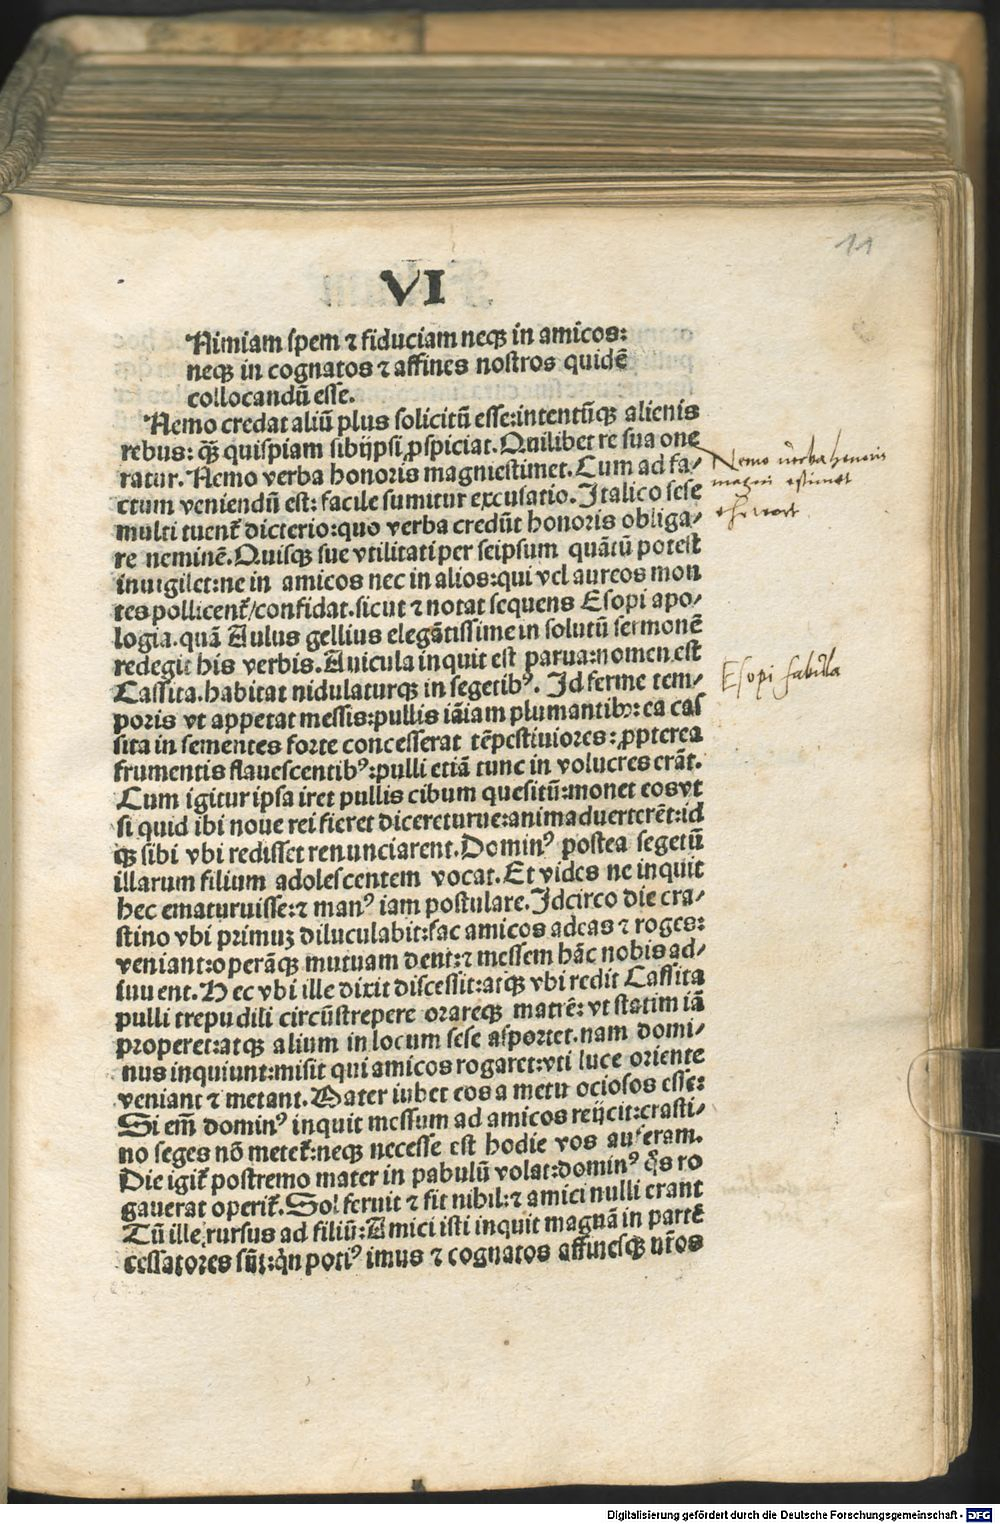 11
VI
Nimiam spem ⁊ fiduciam neqꝫ in amicos:
neqꝫ in cognatos ⁊ affines nostros quidē
collocandū esse.
Nemo credat aliū plus solicitū esse:intentūqꝫ alienis
rebus: qꝫ̄ quispiam sibijpsi ꝓspiciat. Quilibet re sua one
ratur. Nemo verba honoris magniestimet. Cum ad fa⸗
ctum veniendū est: facile sumitur excusatio. Italico sese
multi tuent᷑ dicterio:quo verba credūt honoris obliga⸗
re neminē. Quisqꝫ sue vtilitati per seipsum quātū potest
inuigilet:ne in amicos nec in alios:qui vel aureos mon
tes pollicent᷑/confidat. sicut ⁊ notat sequens Esopi apo⸗
logia. quā Aulus gellius elegātissime in solutū sermonē
redegit his verbis. Auicula inquit est parua:nomen est
Cassita. habitat nidulaturqꝫ in segetibꝰ. Id ferme tem⸗
poris vt appetat messis:pullis iāiam plumantibꝰ: ea cas
sita in sementes forte concesserat tēpestiuiores: ꝓpterea
frumentis flauescentibꝰ:pulli etiā tunc in volucres erāt.
Cum igitur ipsa iret pullis cibum quesitū:monet eos vt
si quid ibi noue rei fieret diceretur ue:animaduerterēt:id
qꝫ sibi vbi redisset renunciarent. Dominꝰ postea segetū
illarum filium adolescentem vocat. Et vides ne inquit
hec ematuruisse:⁊ manꝰ iam postulare. Idcirco die cra⸗
stino vbi primuꝫ diluculabit:fac amicos adeas ⁊ roges:
veniant:operāqꝫ mutuam dent:⁊ messem hāc nobis ad⸗
iuuent. Hec vbi ille dixit discessit:atqꝫ vbi redit Cassita
pulli trepudili circūstrepere orareqꝫ matrē: vt statim iā
properet:atqꝫ alium in locum sese asportet. nam domi⸗
nus inquiunt:misit qui amicos rogaret:vti luce oriente
veniant ⁊ metant. Mater iubet eos a metu ociosos esse:
Si em̄ dominꝰ inquit messum ad amicos reijcit:crasti⸗
no seges nō metet᷑:neqꝫ necesse est hodie vos auferam.
Die igit᷑ postremo mater in pabulū volat:dominꝰ qͦs ro
gauerat operit᷑. Sol feruit ⁊ fit nihil:⁊ amici nulli erant
Tū ille rursus ad filiū: Amici isti inquit magnā in partē
cessatores sūt:qͥn potiꝰ imus ⁊ cognatos affinesqꝫ nr̄os
Nemo verba honoris
magni estimet
Esopi fabula
Digitalisierung gefördert durch die Deutsche Forschungsgemeinschaft - DFG